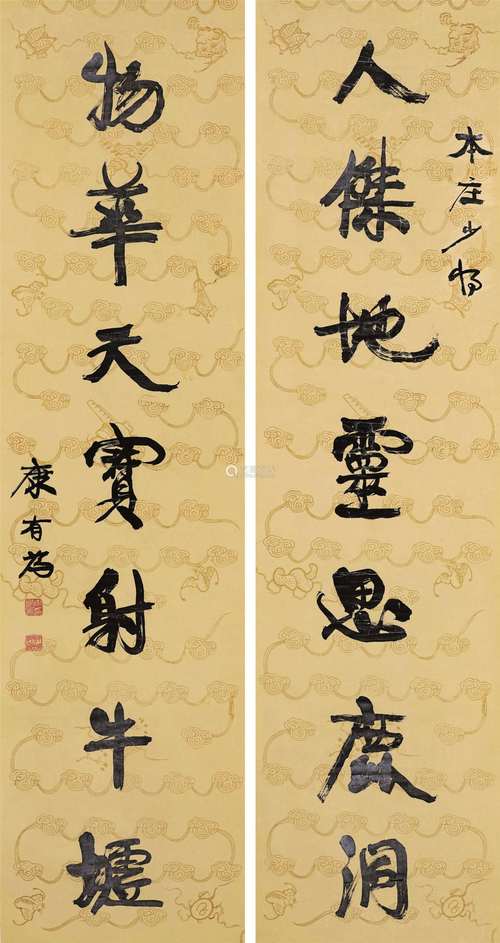 人傑地靈思鹿洞
本庄少將
物華天寶射牛墟
康有為